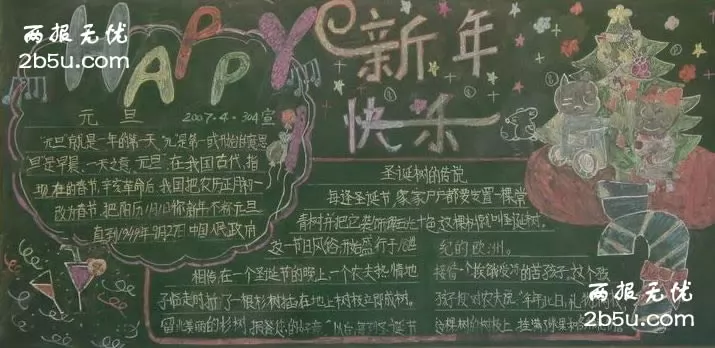 两报无优
2b5u.com
HAPPY
新年
快乐
元旦
2007·4·304宣
"元旦"就是一年的第一天"元"是第一或开始的意思
旦是早晨、一天之意，元旦，在我国古代，指
现在的春节，辛亥革命后，我国把农历正月初一
改为春节，把阳历1月1日称新年，不称元旦
直到1949年9月27 中国人民政府
圣诞树的传说
每逢圣诞节，家家户户都要安置一棵常
青树并把它装饰 五光十色，这棵树就叫圣诞树。
这一节日风俗，开始盛行于 世
纪的欧洲。
相传，在一个圣诞节的晚上一个农夫热情地
接待 一个挨饿 的苦孩子，这个孩
子临走时，折了一根杉树插在地上树枝 成树，
孩子 对农夫说"年年此日，礼物
留此美丽的杉树，报答您的 以后 圣诞节
这棵树的树枝上，挂满了
两报无优
2b5u.com